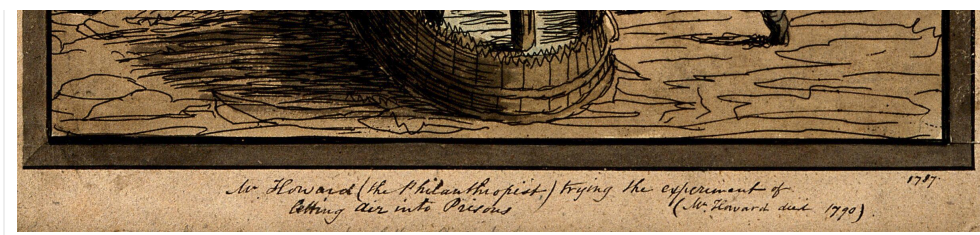 Mr Howard (the Philanthropist) trying the experiment of
letting air into Prisons
(Mr. Howard died 1790)
1787